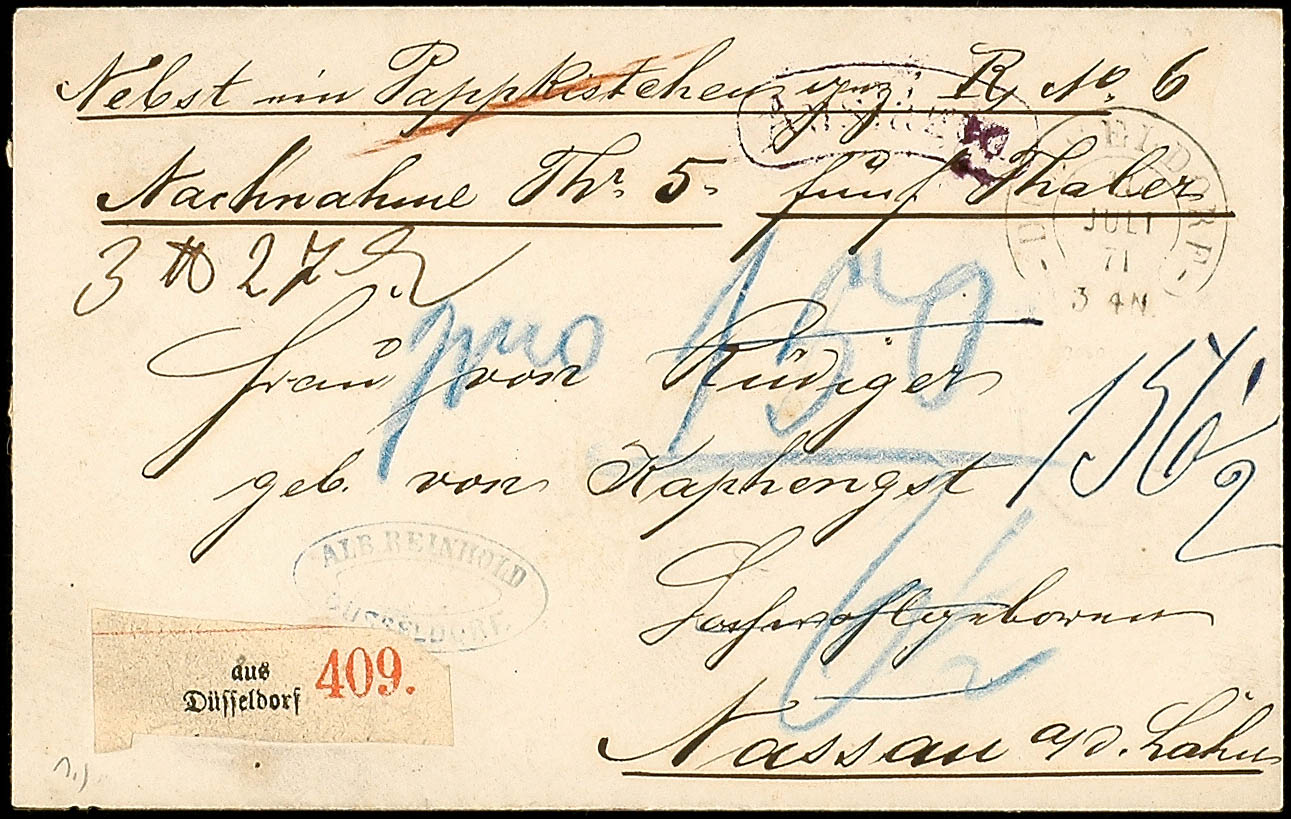 Nebst ein Pappkistchen gez: R No. 6
Nachnahme Thr. 5. fünf Thaler
DÜSSELDORF
JULI
71
3 4 N.
3 ℔ 27
pro 150
Frau von Rüdiger
geb. von Kaphengst
Hochwohlgeboren
Nassau a/d. Lahn
ALB. REINHOLD
DÜSSELDORF.
aus
Düsseldorf 409.